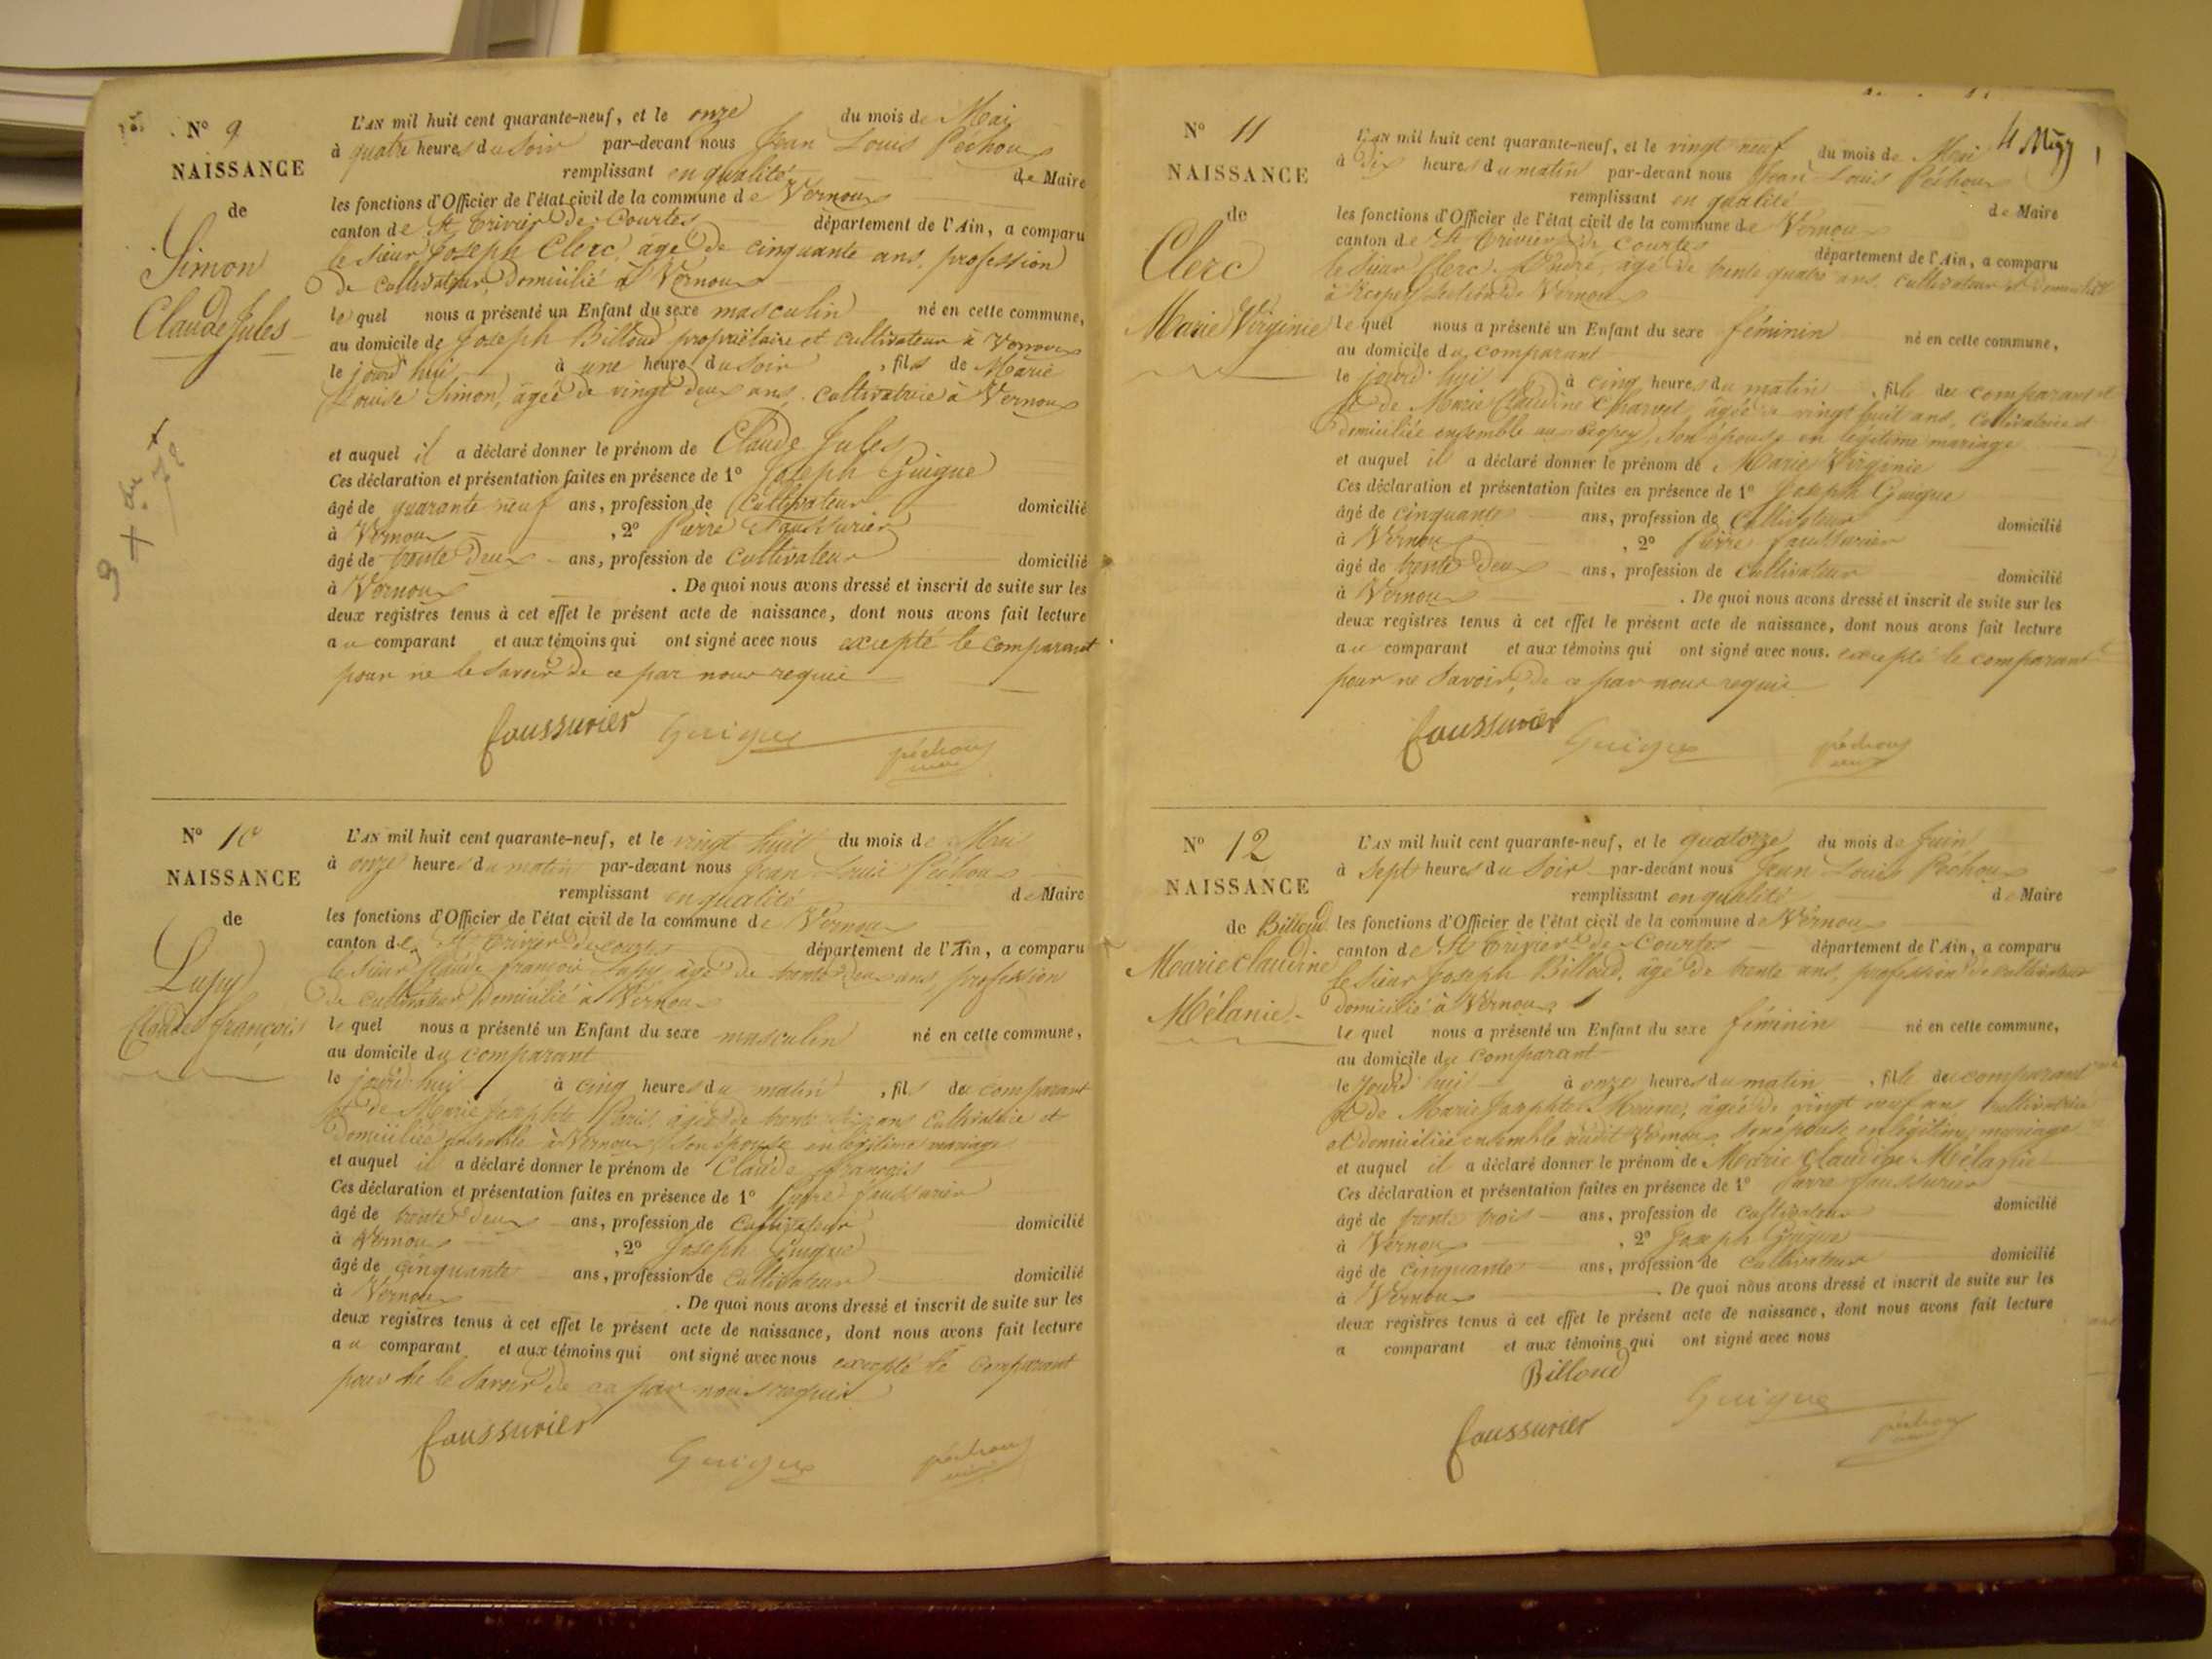 N° 9
NAISSANCE
de
Simon
Claude Jules
L'AN mil huit cent quarante-neuf, et le onze du mois de Mai
à quatre heures du soir par-devant nous Jean Louis Péchoux
remplissant en qualité de Maire
les fonctions d'Officier de l'état civil de la commune de Vernoux
canton de St Trivier de Courtes département de l'Ain, a comparu
le sieur Joseph Clerc, âgé de cinquante ans, profession
de cultivateur, domicilié à Vernoux
lequel nous a présenté un Enfant du sexe masculin né en cette commune,
au domicile de Joseph Billoud propriétaire et cultivateur à Vernoux
le jourd'hui à une heure du soir, fils de Marie
Louise Simon, âgée de vingt deux ans, cultivatrice à Vernoux
et auquel il a déclaré donner le prénom de Claude Jules
Ces déclaration et présentation faites en présence de 1° Joseph Guigue
âgé de quarante neuf ans, profession de Cultivateur domicilié
à Vernoux, 2° Pierre Faussurier
âgé de trente deux ans, profession de cultivateur domicilié
à Vernoux. De quoi nous avons dressé et inscrit de suite sur les
deux registres tenus à cet effet le présent acte de naissance, dont nous avons fait lecture
au comparant et aux témoins qui ont signé avec nous excepté le comparant
pour ne le savoir de ce par nous requis
Faussurier Guigue péchoux
N° 10
NAISSANCE
de
Lupy
Claude françois
L'AN mil huit cent quarante-neuf, et le vingt huit du mois de Mai
à onze heures du matin par-devant nous Jean Louis Péchoux
remplissant en qualité de Maire
les fonctions d'Officier de l'état civil de la commune de Vernoux
canton de St Trivier de courtes département de l'Ain, a comparu
le sieur Claude françois Lupy âgé de trente deux ans, profession
de cultivateur domicilié à Vernoux
lequel nous a présenté un Enfant du sexe masculin né en cette commune,
au domicile du comparant
le jourd'hui à cinq heures du matin, fils du comparant
et de Marie Josephte âgée de trente ans cultivatrice et
domiciliée ensemble à Vernoux, son épouse en légitime mariage
et auquel il a déclaré donner le prénom de Claude françois
Ces déclaration et présentation faites en présence de 1° Pierre faussurier
âgé de trente deux ans, profession de Cultivateur domicilié
à Vernoux, 2° Joseph Guigue
âgé de cinquante ans, profession de Cultivateur domicilié
à Vernoux. De quoi nous avons dressé et inscrit de suite sur les
deux registres tenus à cet effet le présent acte de naissance, dont nous avons fait lecture
au comparant et aux témoins qui ont signé avec nous excepté le comparant
pour ne le savoir de ce par nous requis
Faussurier Guigue péchoux
N° 11
NAISSANCE
de
Clerc
Marie Virginie
L'AN mil huit cent quarante-neuf, et le vingt neuf du mois de Mai
à dix heures du matin par-devant nous Jean Louis Péchoux
remplissant en qualité de Maire
les fonctions d'Officier de l'état civil de la commune de Vernoux
canton de St Trivier de Courtes département de l'Ain, a comparu
le sieur Clerc André, âgé de trente quatre ans, cultivateur et domicilié
à section de Vernoux
lequel nous a présenté un Enfant du sexe féminin né en cette commune,
au domicile du comparant
le jourd'hui à cinq heures du matin, fille du comparant et
de Marie Claudine Charvet, âgée de vingt huit ans, Cultivatrice et
domiciliée ensemble son épouse en légitime mariage
et auquel il a déclaré donner le prénom de Marie Virginie
Ces déclaration et présentation faites en présence de 1° Joseph Guigue
âgé de cinquante ans, profession de Cultivateur domicilié
à Vernoux, 2° Pierre faussurier
âgé de trente deux ans, profession de cultivateur domicilié
à Vernoux. De quoi nous avons dressé et inscrit de suite sur les
deux registres tenus à cet effet le présent acte de naissance, dont nous avons fait lecture
au comparant et aux témoins qui ont signé avec nous. excepté le comparant
pour ne savoir, de ce par nous requis
Faussurier Guigue péchoux
N° 12
NAISSANCE
de Billoud
Marie Claudine
Mélanie
L'AN mil huit cent quarante-neuf, et le quatorze du mois de Juin
à Sept heures du Soir par-devant nous Jean Louis Pechoux
remplissant en qualité de Maire
les fonctions d'Officier de l'état civil de la commune de Vernoux
canton de St Trivier de Courtes département de l'Ain, a comparu
le sieur Joseph Billoud, âgé de trente ans, profession de cultivateur
domicilié à Vernoux
lequel nous a présenté un Enfant du sexe féminin né en cette commune,
au domicile du comparant
le jourd'hui à onze heures du matin, fille du comparant
et de Marie Josephte âgée de vingt neuf ans cultivatrice
et domiciliée ensemble audit Vernoux, son épouse en légitime mariage
et auquel il a déclaré donner le prénom de Marie Claudine Mélanie
Ces déclaration et présentation faites en présence de 1° Pierre faussurier
âgé de trente trois ans, profession de cultivateur domicilié
à Vernoux, 2° Joseph Guigue
âgé de cinquante ans, profession de cultivateur domicilié
à Vernoux. De quoi nous avons dressé et inscrit de suite sur les
deux registres tenus à cet effet le présent acte de naissance, dont nous avons fait lecture
a comparant et aux témoins qui ont signé avec nous
Billoud
Guigue
Faussurier péchoux